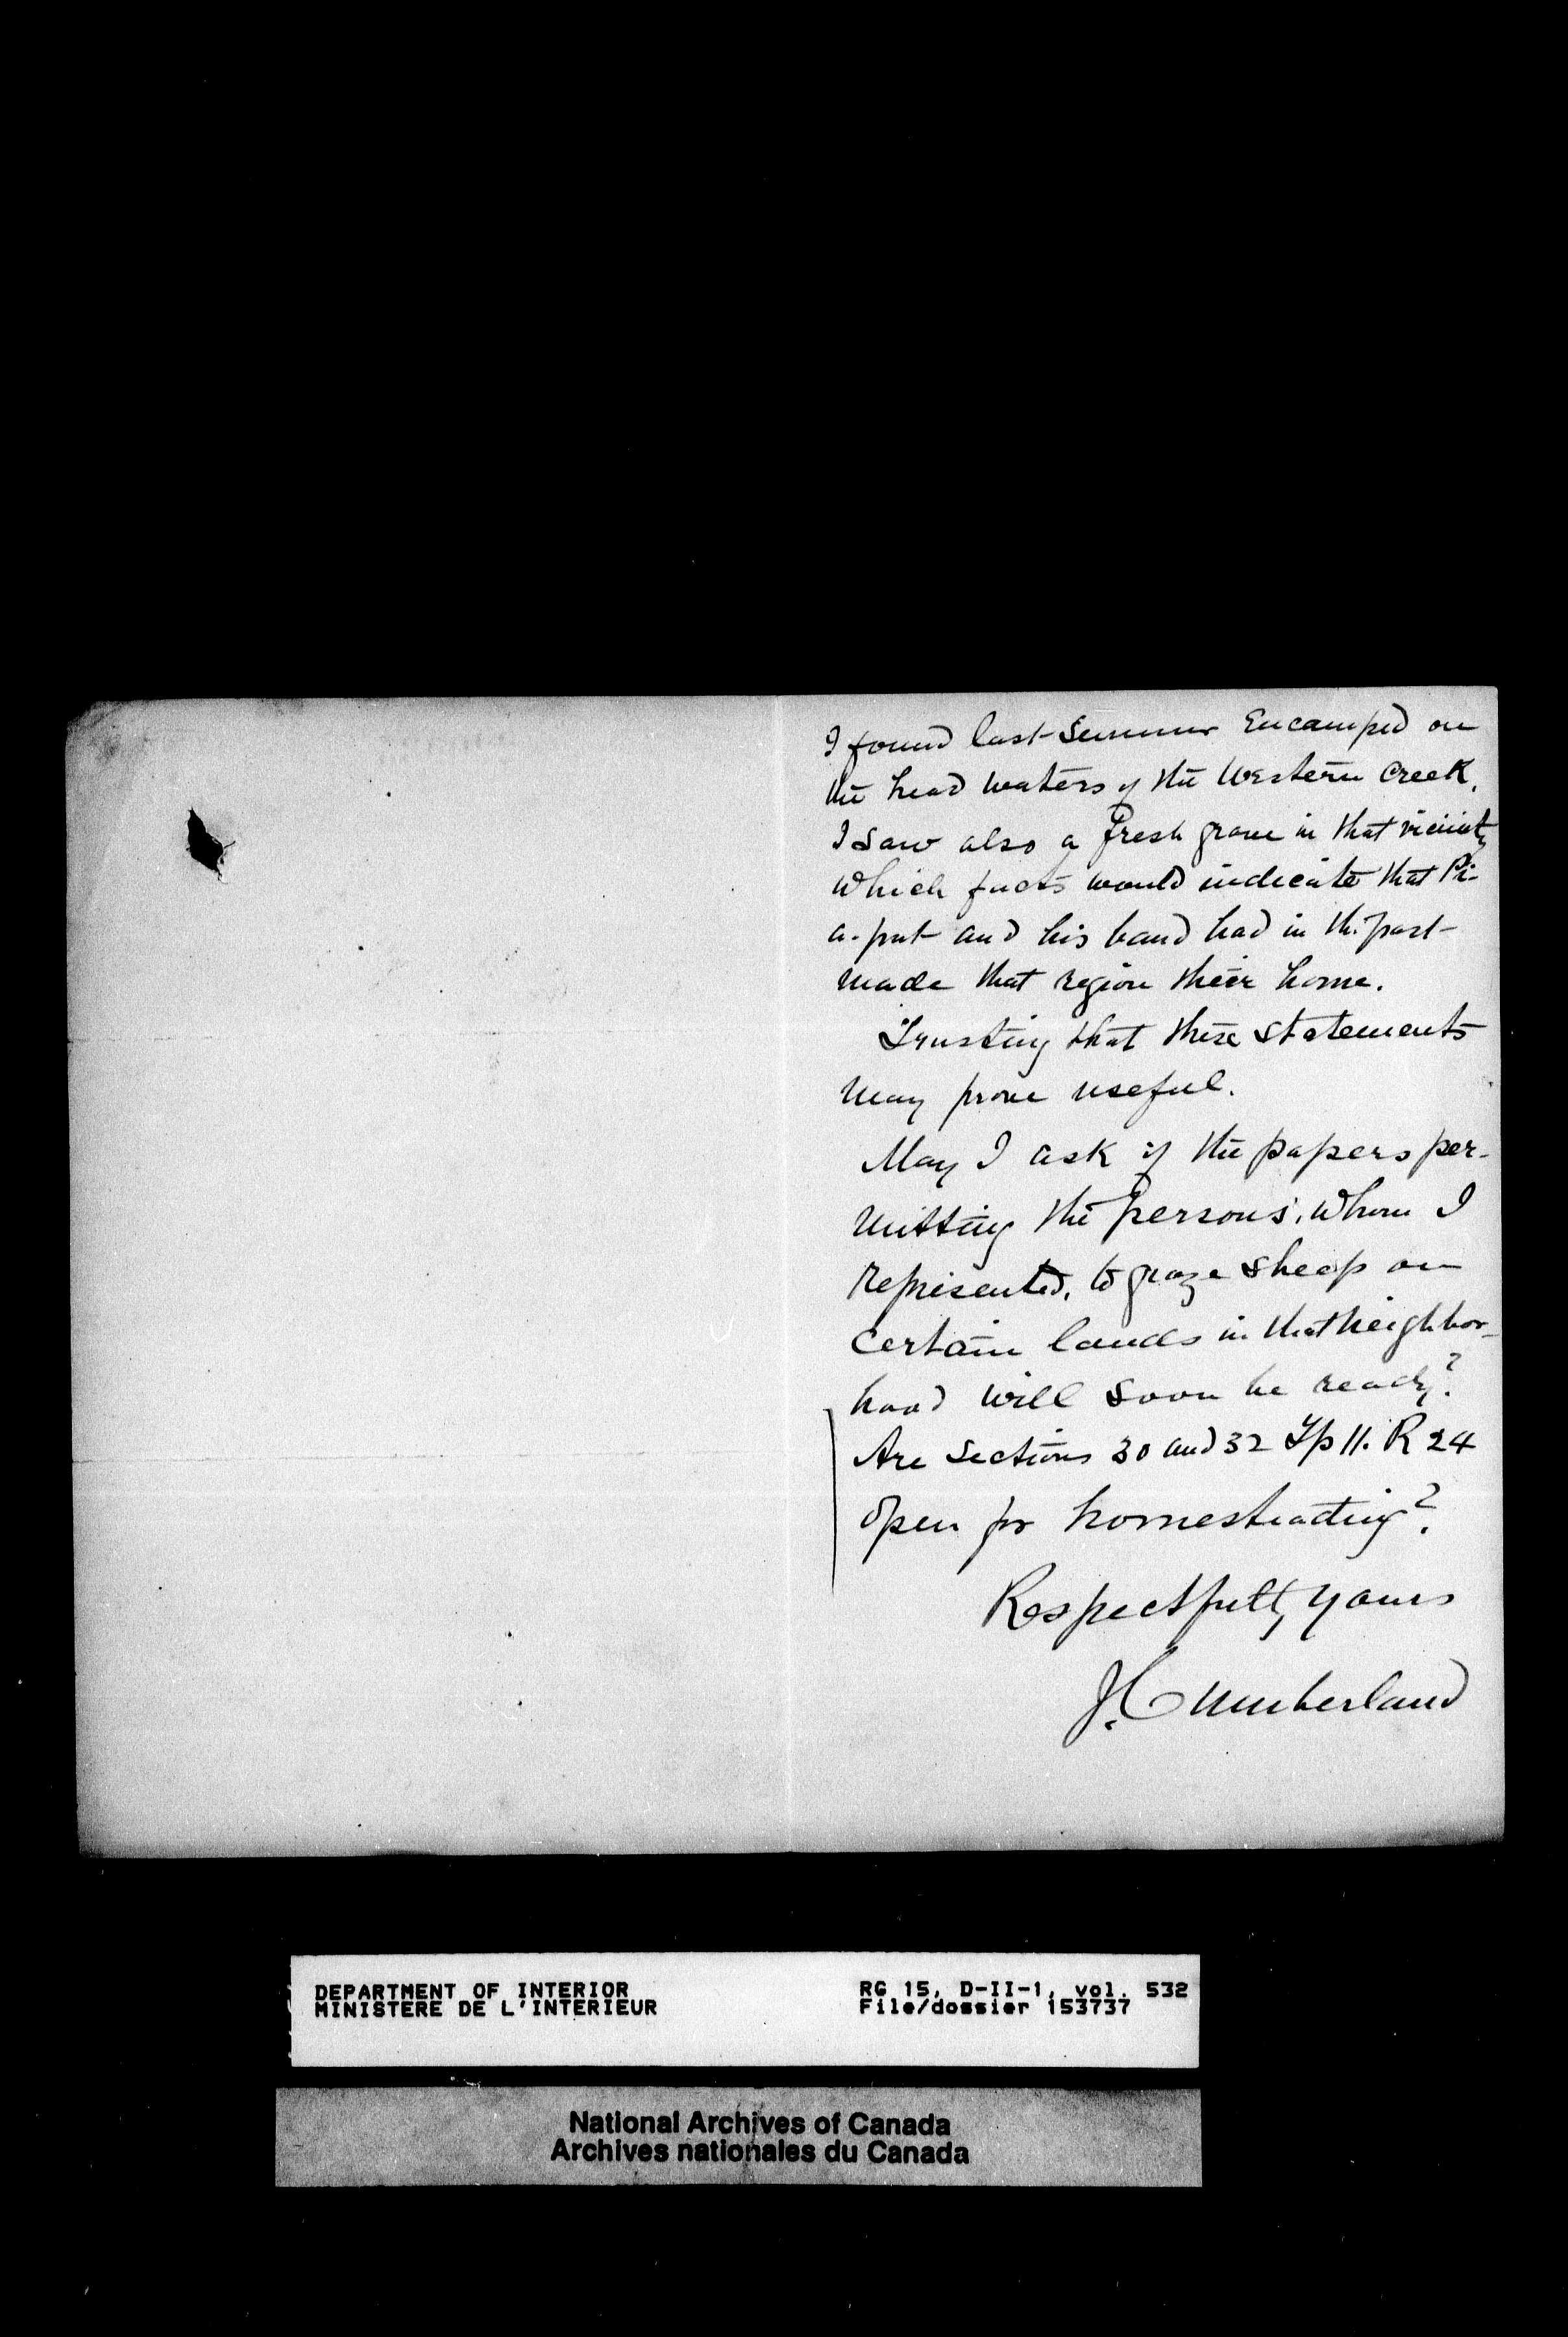 I found last Summer Encamped on
the head waters of the Western Creek.
I saw also a fresh grave in that vicinity
which facts would indicate that Pi-
a-put and his band had in the past
made that region their home.
Trusting that these statements
may prove useful.
May I ask if the papers per-
mitting the persons, whom I
represented, to graze sheep on
certain lands in that neighbor-
hood will soon be ready?
Are Sections 30 and 32 Tp 11. R 24
open for homesteading?
Respectfully yours
J. Cumberland
DEPARTMENT OF INTERIOR
MINISTERE DE L'INTERIEUR
RG 15, D-II-1, vol. 532
File/dossier 153737
National Archives of Canada
Archives nationales du Canada